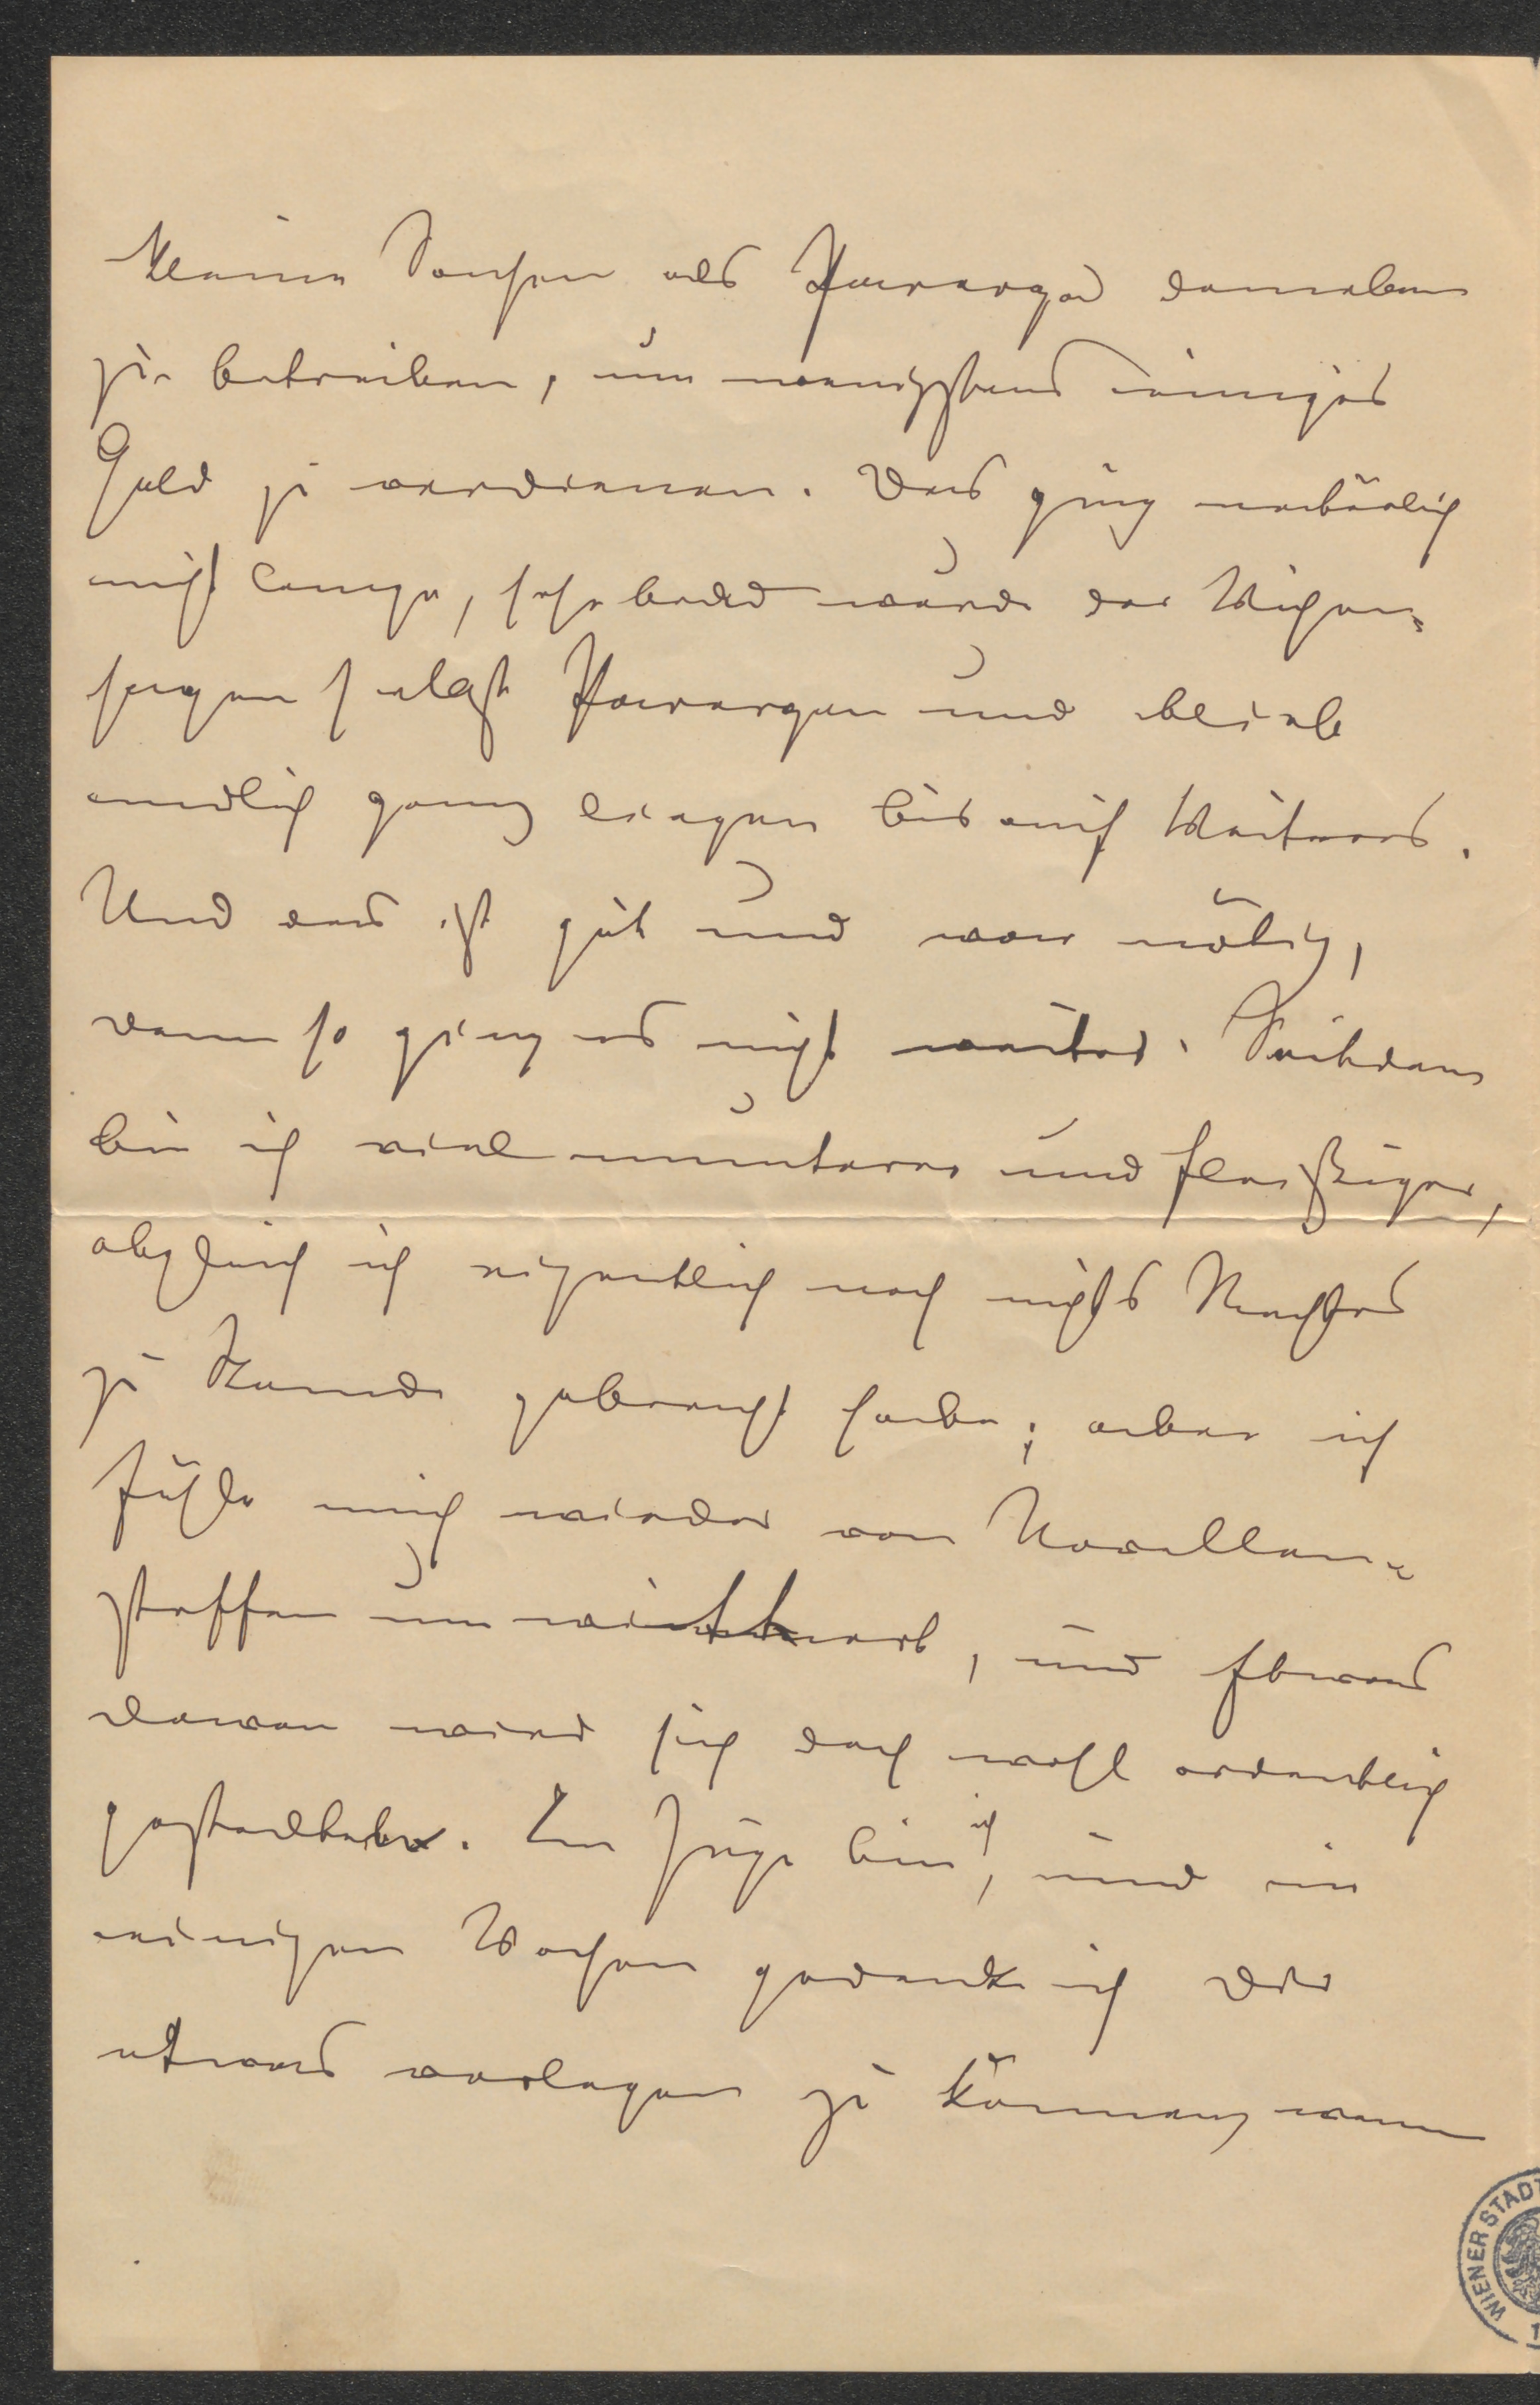 kleine Sachen als Parerga daneben
zu betreiben, um wenigstens einiges
Geld zu verdienen. Das ging natürlich
nicht lange, sehr bald wurde das Wissen-
selbst Parergon und blieb
endlich ganz liegen bis auf Weiteres.
Und das ist gut und war nötig,
denn so ging es nicht weiter. Seitdem
bin ich viel munterer und fleißiger,
obgleich ich eigentlich noch nichts Rechtes
zu Stande gebracht habe; aber ich
fühle mich wieder von Novellen-
stoffen umwittert, und Etwas
davon wird sich doch wohl ordentlich
gestalten. Im Zuge bin ich, und in
einigen Wochen gedenke ich Dir
etwas vorlegen zu können, wenn
WIENER STADT